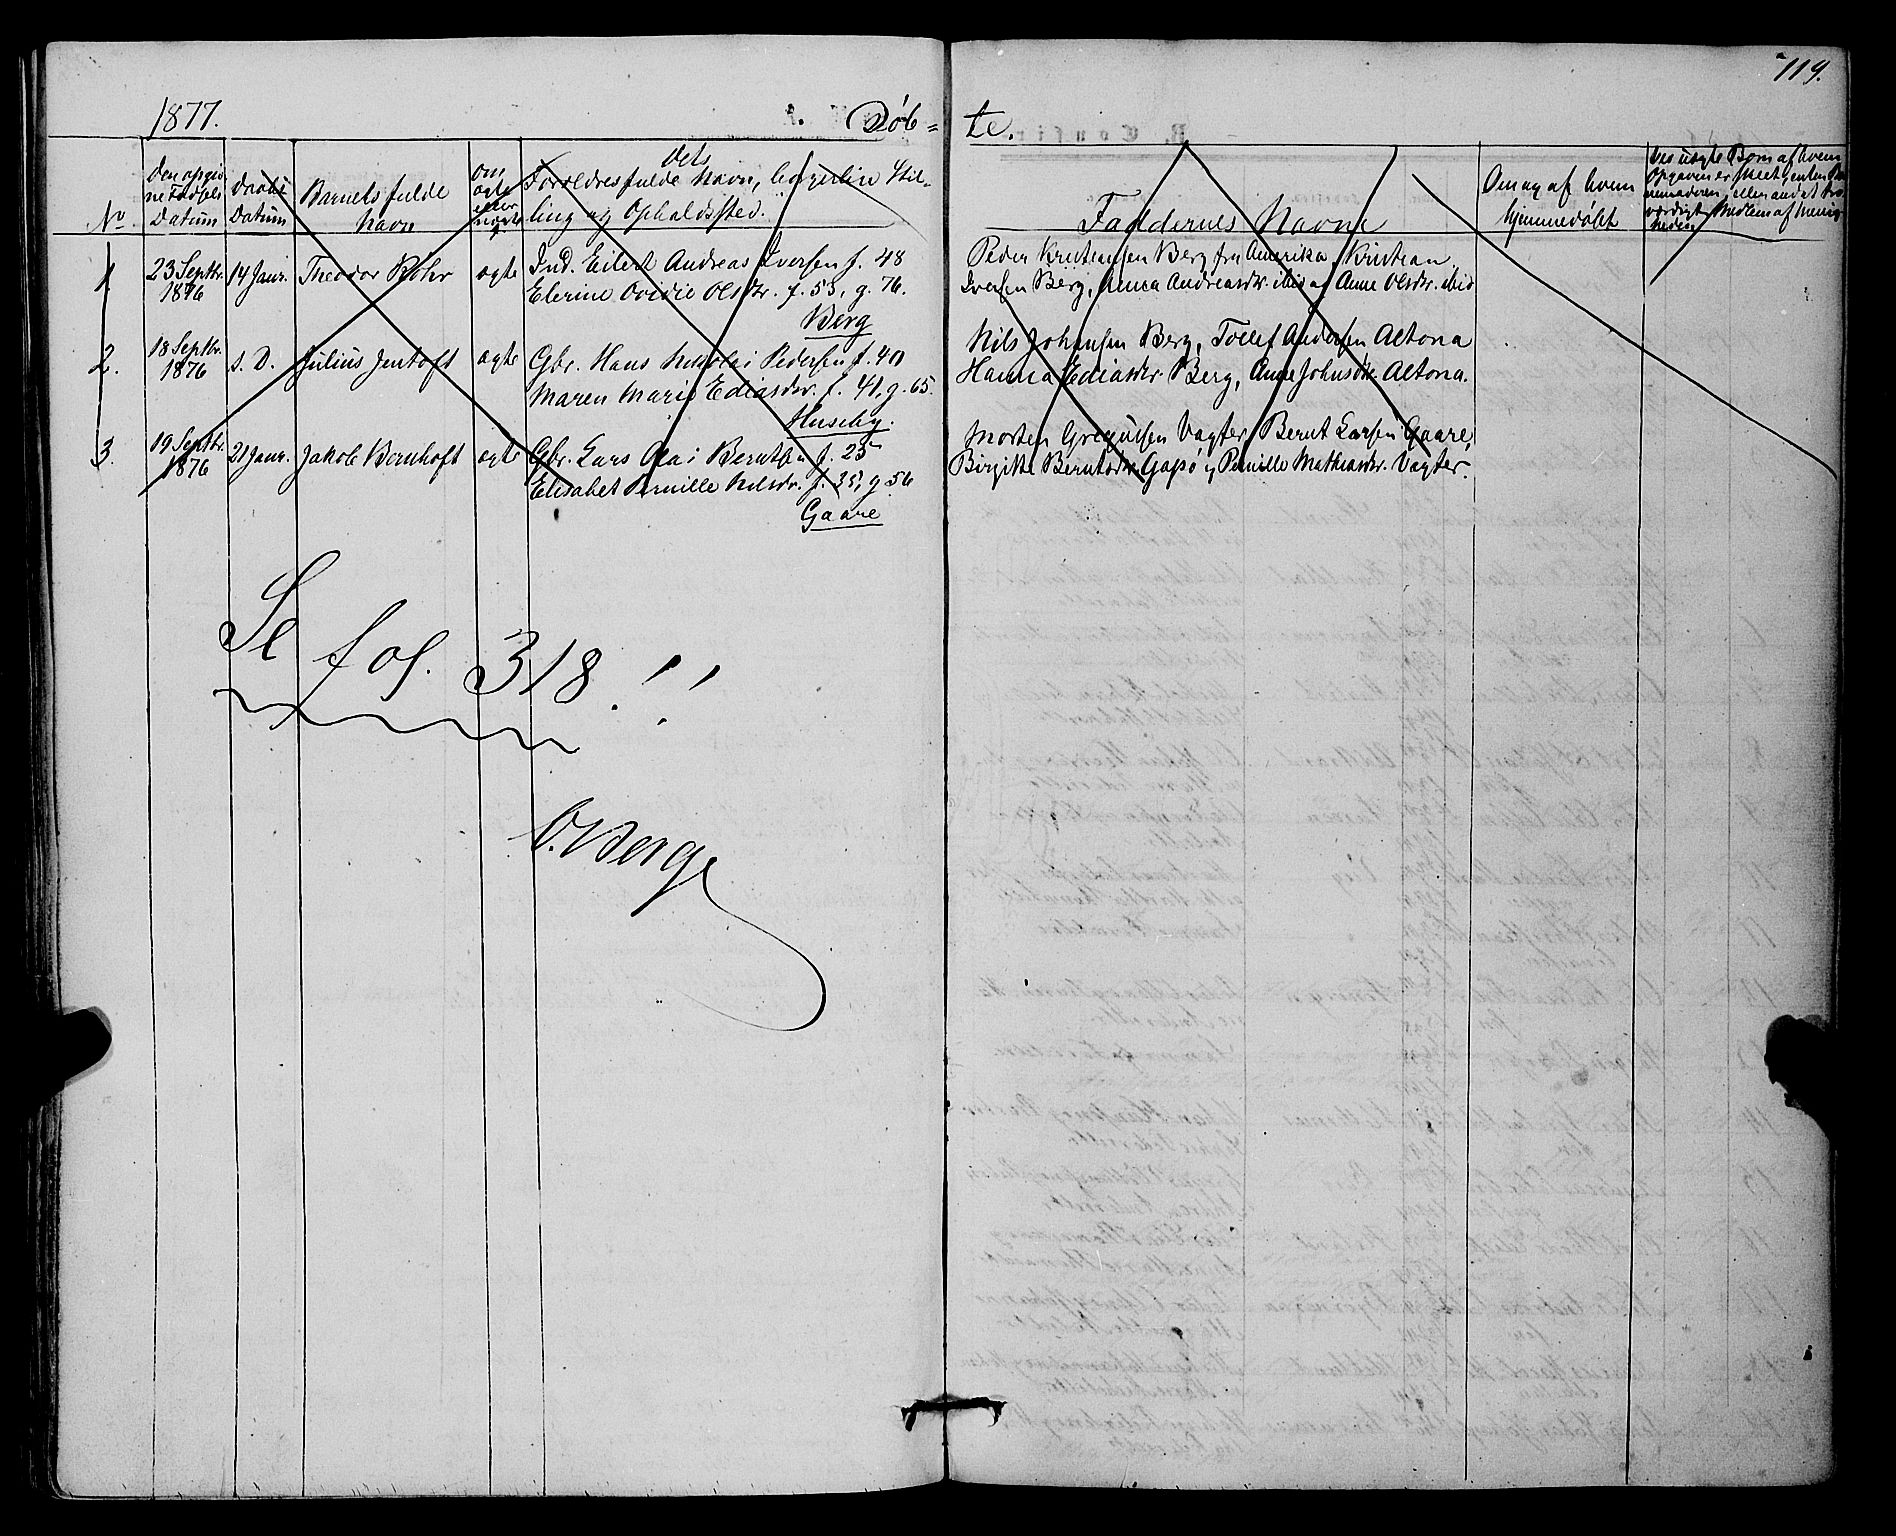 119.
1877.
Døb= te.
No
Den opgiv-
ne Fødsels
Datum
Daabs
Datum
Barnets fulde
Navn
Om
ægte
eller
uægte
Dets
Forældres fulde Navn, borgerlige Stil-
ling og Opholdssted.
Faddernes Navne
Om og af hvem
hjemmedøbt
Ved uægte Børn af hvem
Opgaven er skeet, enten
eller andet tro-
værdigt Medlem af Menig-
heden
1 23 Septbr. 1876 14 Janr. Theodor Rohr ægte Ind. Eilert Andreas Iversen f. 48
Elerine Ovidie Olsdtr. f. 53, g. 76.
Berg
Peder Kristiansen Berg fra Amerika, Kristian
Iversen Berg, Anna Andreasdtr. ibid og Anne Olsdtr. ibid
2. 18 Septbr. 1876 s. D. Julius Jentoft ægte Gbr. Hans Nikolai Pedersen f. 40
Maren Marie Ediasdtr. f. 41, g. 65.
Huseby.
Nils Johansen Berg, Tollef Andersen Altona
Hanna Ediasdtr. Berg, Anne Johnsdtr. Altona.
3. 19 Septbr. 1876 21 Janr. Jakob Bernhoft ægte Gbr. Lars Olai Berntsen f. 25
Elisabet Pernille Nilsdr. f. 35, g 56
Gaare
Morten Gregusen Vagter, Bernt Larsen Gaare,
Birgitte Berntsdr. Gapø og Pernille Mathiasdr. Vagter.
Se fol. 318.!!
O. Berg